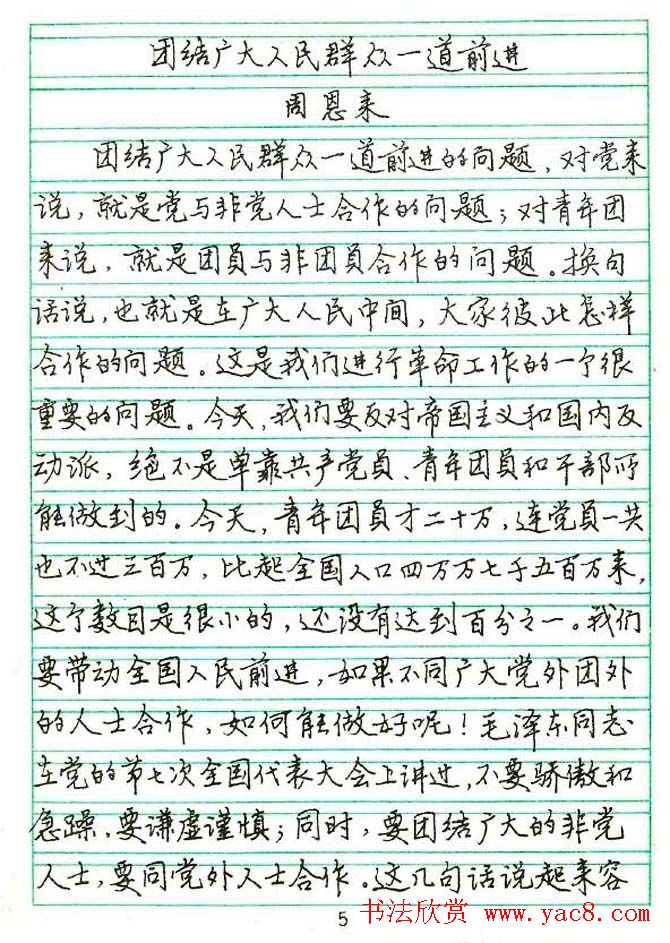 团结广大人民群众一道前进
周恩来
团结广大人民群众一道前进的问题，对党来
说，就是党与非党人士合作的问题；对青年团
来说，就是团员与非团员合作的问题。换句
话说，也就是在广大人民中间，大家彼此怎样
合作的问题。这是我们进行革命工作的一个很
重要的问题。今天，我们要反对帝国主义和国内反
动派，绝不是单靠共产党员、青年团员和干部所
能做到的。今天，青年团员才二十万，连党员一共
也不过三百万，比起全国人口四万万七千五百万来，
这个数目是很小的，还没有达到百分之一。我们
要带动全国人民前进，如果不同广大党外团外
的人士合作，如何能做好呢！毛泽东同志
在党的第七次全国代表大会上讲过，不要骄傲和
急躁，要谦虚谨慎；同时，要团结广大的非党
人士，要同党外人士合作。这几句话说起来容
5
书法欣赏 www.yac8.com